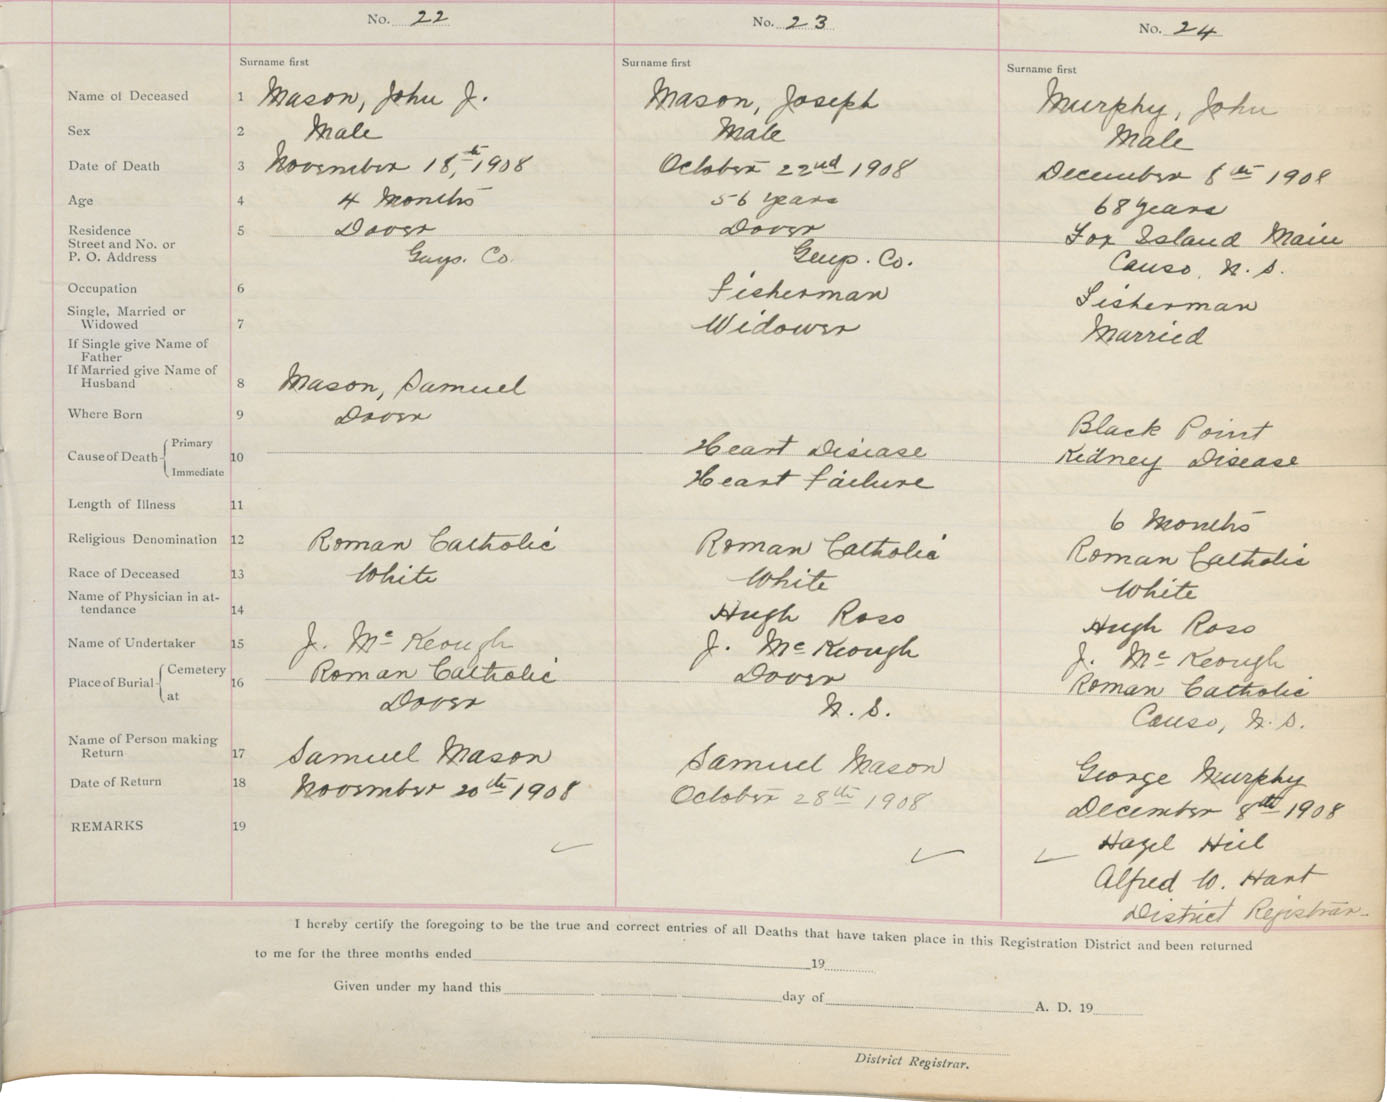 No. 22 No. 23 No. 24
Surname first Surname first Surname first
Name of Deceased 1 Mason, John J. Mason, Joseph Murphy, John
Sex 2 Male Male Male
Date of Death 3 November 18,th 1908 October 22nd 1908 December 6th 1908
Age 4 4 Months 56 years 68 years
Residence 5 Dover Dover Fox Island Main
Street and No. or
P. O. Address Guys. Co. Guys. Co. Canso, N. S.
Occupation 6 Fisherman Fisherman
Single, Married or
Widowed 7 Widower Married
If Single give Name of
Father
If Married give Name of
Husband 8 Mason, Samuel
Where Born 9 Dover Black Point
Cause of Death Primary 10 Heart Disease Kidney Disease
Immediate Heart Failure
Length of Illness 11 6 Months
Religious Denomination 12 Roman Catholic Roman Catholic Roman Catholic
Race of Deceased 13 White White White
Name of Physician in at-
tendance 14 Hugh Ross Hugh Ross
Name of Undertaker 15 J. McKeough J. McKeough J. McKeough
Place of Burial Cemetery 16 Roman Catholic Dover Roman Catholic
at Dover N. S. Canso, N. S.
Name of Person making
Return 17 Samuel Mason Samuel Mason George Murphy
Date of Return 18 November 20th 1908 October 28th 1908 December 8th 1908
REMARKS 19 Hazel Hill
Alfred W. Hart
District Registrar.
I hereby certify the foregoing to be the true and correct entries of all Deaths that have taken place in this Registration District and been returned
to me for the three months ended 19
Given under my hand this day of A. D. 19
District Registrar.